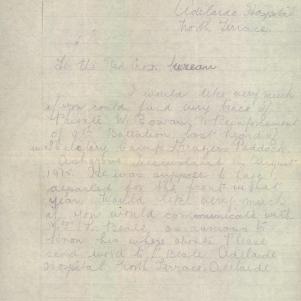 Adelaide Hospital
North Terrace
To the Red Cross Bureau
I would like very much
if you could find any trace of
Private W. Cowan 7 Reinforcement
of 9th Battalion last heard of
well clary Camp Frazers Paddock
Queensland in August
1915. He was suppose to have
departed for the front in that
year. Would like very much
if you would communicate with
L. Beale, as anxious to
know his where abouts Please
send word to L Beale Adelaide
Hospital North Terrace Adelaide